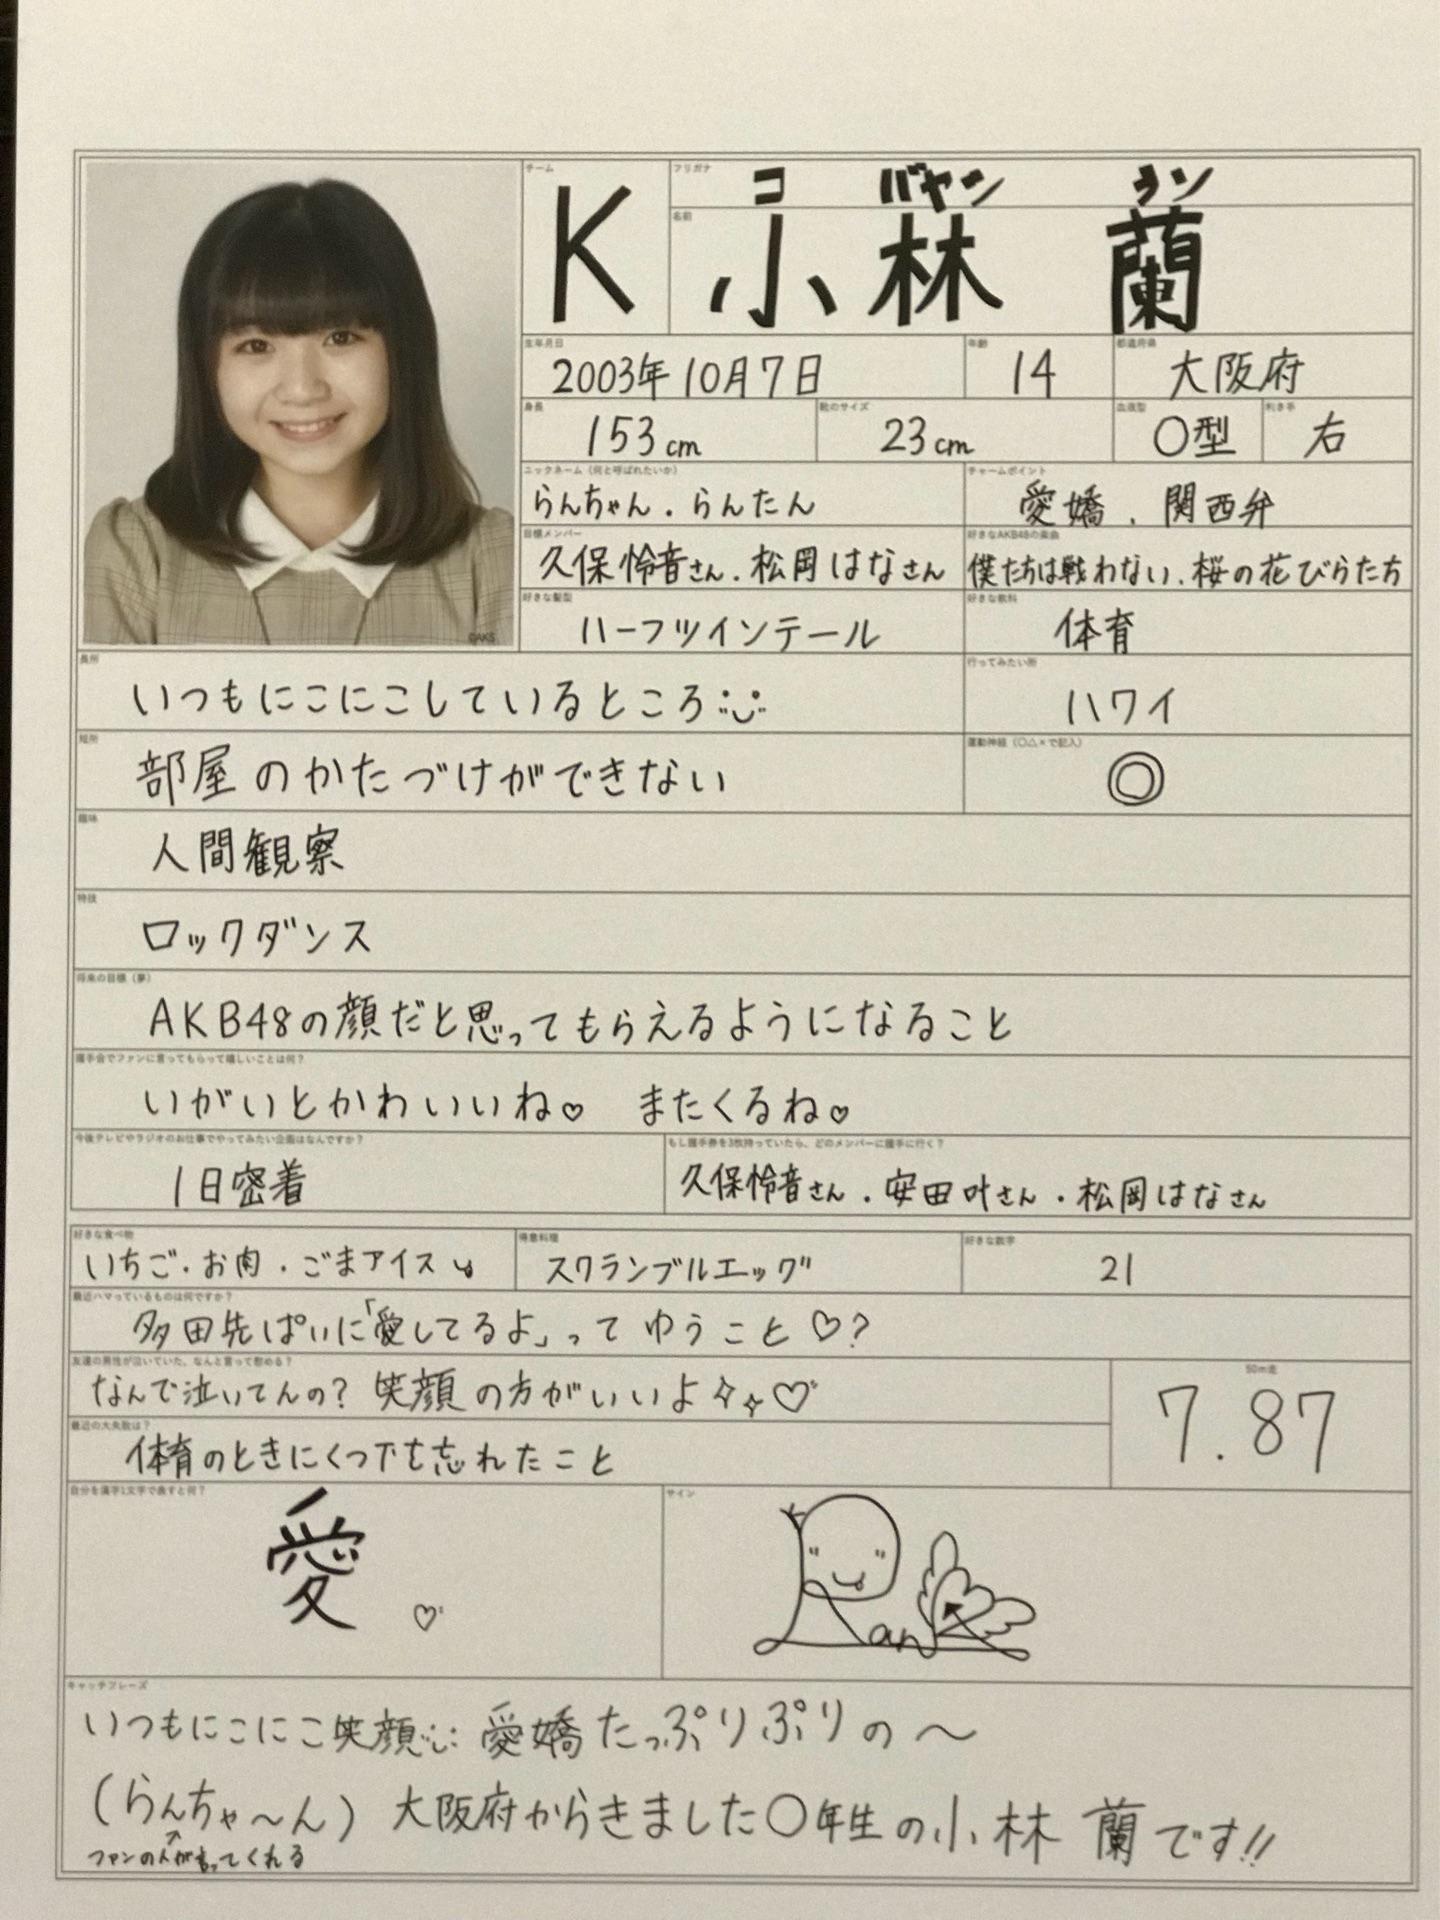 チーム
K
フリガナ
コ バヤシ ラン
名前
小林 蘭
生年月日
2003年10月7日
年齢
14
都道府県
大阪府
身長
153cm
靴のサイズ
23cm
血液型
O型
利き手
右
ニックネーム(何と呼ばれたいか)
らんちゃん.らんたん
チャームポイント
愛嬌.関西弁
目標メンバー
久保怜音さん.松岡はなさん
好きなAKB48の楽曲
僕たちは戦わない.桜の花びらたち
好きな髪型
ハーフツインテール
好きな教科
体育
©AKS
長所
いつもにこにこしているところ
行ってみたい所
ハワイ
短所
部屋のかたづけができない
運動神経(○△×で記入)
◎
趣味
人間観察
特技
ロックダンス
将来の目標(夢)
AKB48の顔だと思ってもらえるようになること
握手会でファンに言ってもらって嬉しいことは何?
いがいとかわいいね♡ またくるね♡
今後テレビやラジオのお仕事でやってみたい企画はなんですか?
1日密着
もし握手券を3枚持っていたら、どのメンバーに握手に行く?
久保怜音さん.安田叶さん.松岡はなさん
好きな食べ物
いちご.お肉.ごまアイス
得意料理
スクランブルエッグ
好きな数字
21
最近ハマっているものは何ですか?
多田先ぱいに「愛してるよ」ってゆうこと♡?
友達の男性が泣いていた、なんと言って慰める?
なんで泣いてんの?笑顔の方がいいよ♡
50m走
7.87
最近の大失敗は?
体育のときにくつ下を忘れたこと
自分を漢字1文字で表すと何?
愛♡
サイン
Ran
キャッチフレーズ
いつもにこにこ笑顔 愛嬌たっぷりぷりの〜
(らんちゃ〜ん)大阪府からきました○年生の小林 蘭です!!
ファンの人が言ってくれる